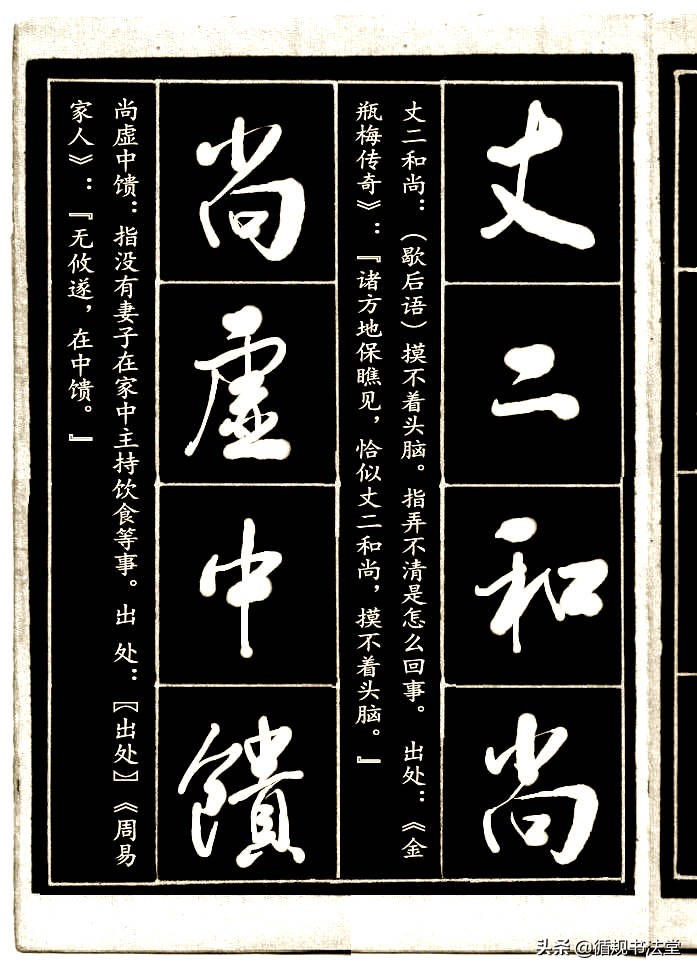 丈二和尚
丈二和尚：（歇后语）摸不着头脑。指弄不清是怎么回事。 出处：《金
瓶梅传奇》：『诸方地保瞧见，恰似丈二和尚，摸不着头脑。』
尚虚中馈
尚虚中馈：指没有妻子在家中主持饮食等事。 出 处：〖出处〗《周易
家人》：『无攸遂，在中馈。』
头条 @循规书法堂